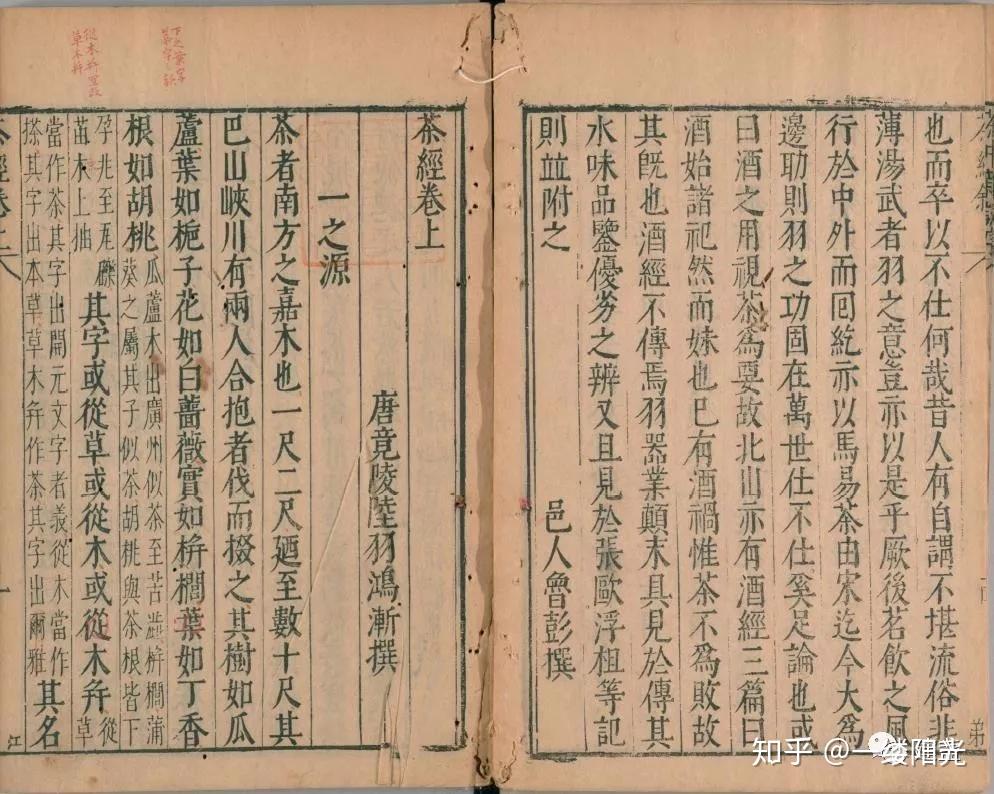 也而卒以不仕何哉昔人有自謂不堪流俗非
薄湯武者羽之意豈亦以是乎厥後茗飲之風
行於中外而囘紇亦以馬易茶由宋迄今大為
邊助則羽之功固在萬世仕不仕奚足論也或
曰酒之用視茶為要故北山亦有酒經三篇曰
酒始諸祀然而妹也已有酒禍惟茶不為敗故
其既也酒經不傳焉羽器業顛末具見於傳其
水味品鑒優劣之辨又且見於張歐浮柤等記
則並附之
邑人魯彭撰
茶經卷上
唐竟陵陸羽鴻漸撰
一之源
茶者南方之嘉木也一尺二尺廼至數十尺其
巴山峽川有兩人合抱者伐而掇之其樹如瓜
蘆葉如梔子花如白薔薇實如栟櫚葉如丁香
根如胡桃
瓜蘆木出廣州似茶至苦澁栟櫚蒲
葵之屬其子似茶胡桃與茶根皆下
孕兆至瓦礫
苗木上抽
其字或從草或從木或從木并
從
草
當作茶其字出開元文字者義從木當作
搽其字出本草草木并作茶其字出爾雅
其名
茶經卷上
一
江
下之葉字
草木并
知乎 @一缕阳光